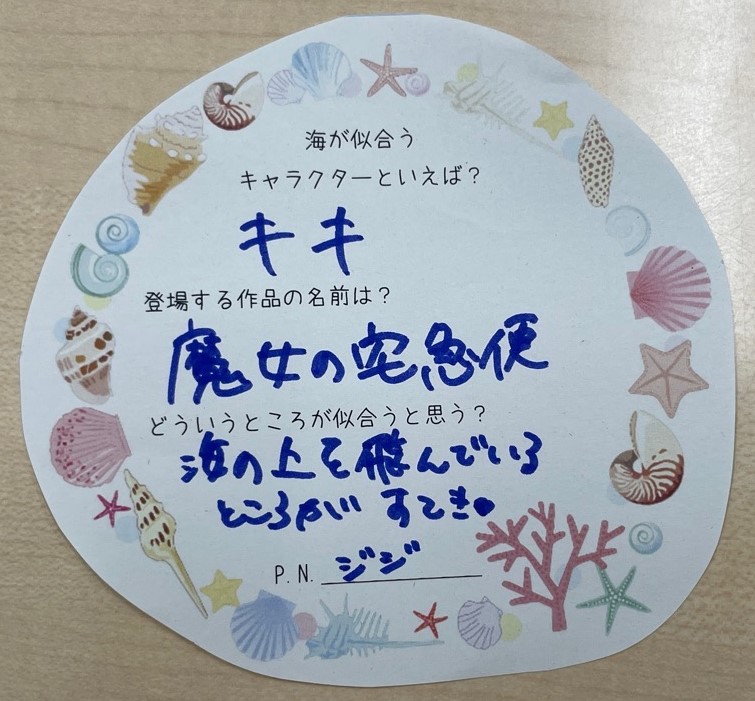 海が似合う
キャラクターといえば？
キキ
登場する作品の名前は？
魔女の宅急便
どういうところが似合うと思う？
海の上を飛んでいる
ところが すてき。
P.N. ジジ